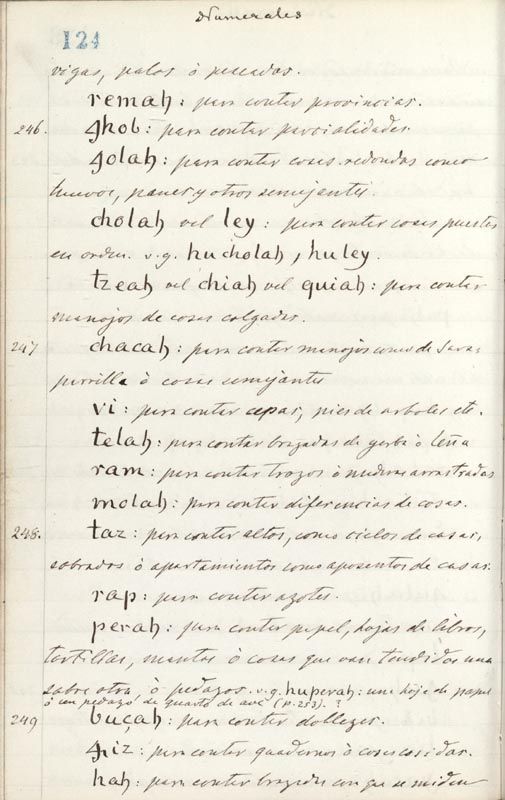 Numerales
124
vigas, palos ò pescados.
remah: para contar provincias.
246. ꜭhob: para contar parcialidades.
ꜭolah: para contar cosas redondas como
huevos, panes y otros semejantes.
cholah vel ley: para contar cosas puestas
en orden. v.g. hucholah, huley.
tzeah vel chiah vel quiah: para contar
manojos de cosas colgadas.
247 chacah: para contar manojos como de sarza-
parrilla ò cosas semejantes
vi: para contar cepas, pies de arboles etc.
telah: para contar brazadas de yerba ò leña
ram: para contar trozos ò maderas arrastradas
molah: para contar diferencias de cosas.
248. taz: para contar altos, como cielos de casas,
sobrados ò apartamientos como aposentos de casas.
rap: para contar azotes.
perah: para contar papel, hojas de libros,
tortillas, mantas ò cosas que van tendidas una
sobre otra, ò pedazos. v.g. huperah: una hoja de papel
ò un pedazo de quarto de ave (p. 253). ?
249 buçah: para contar dobleces.
ꜭiz: para contar quadernos ò cosas cosidas.
hah: para contar brazadas con que se miden